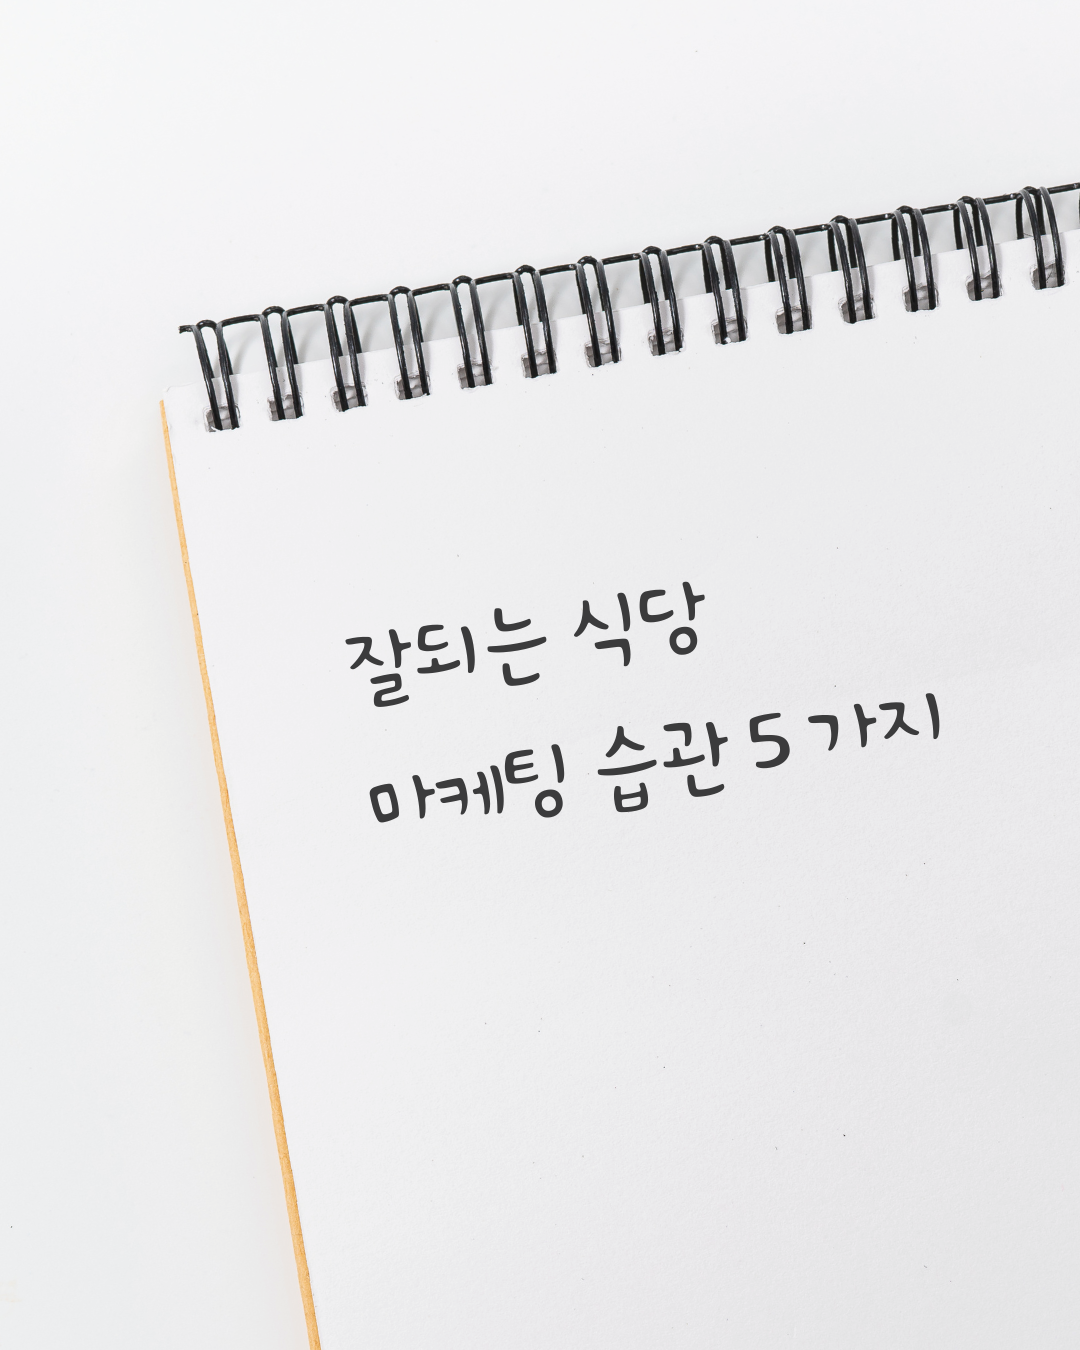 잘되는 식당
마케팅 습관 5가지